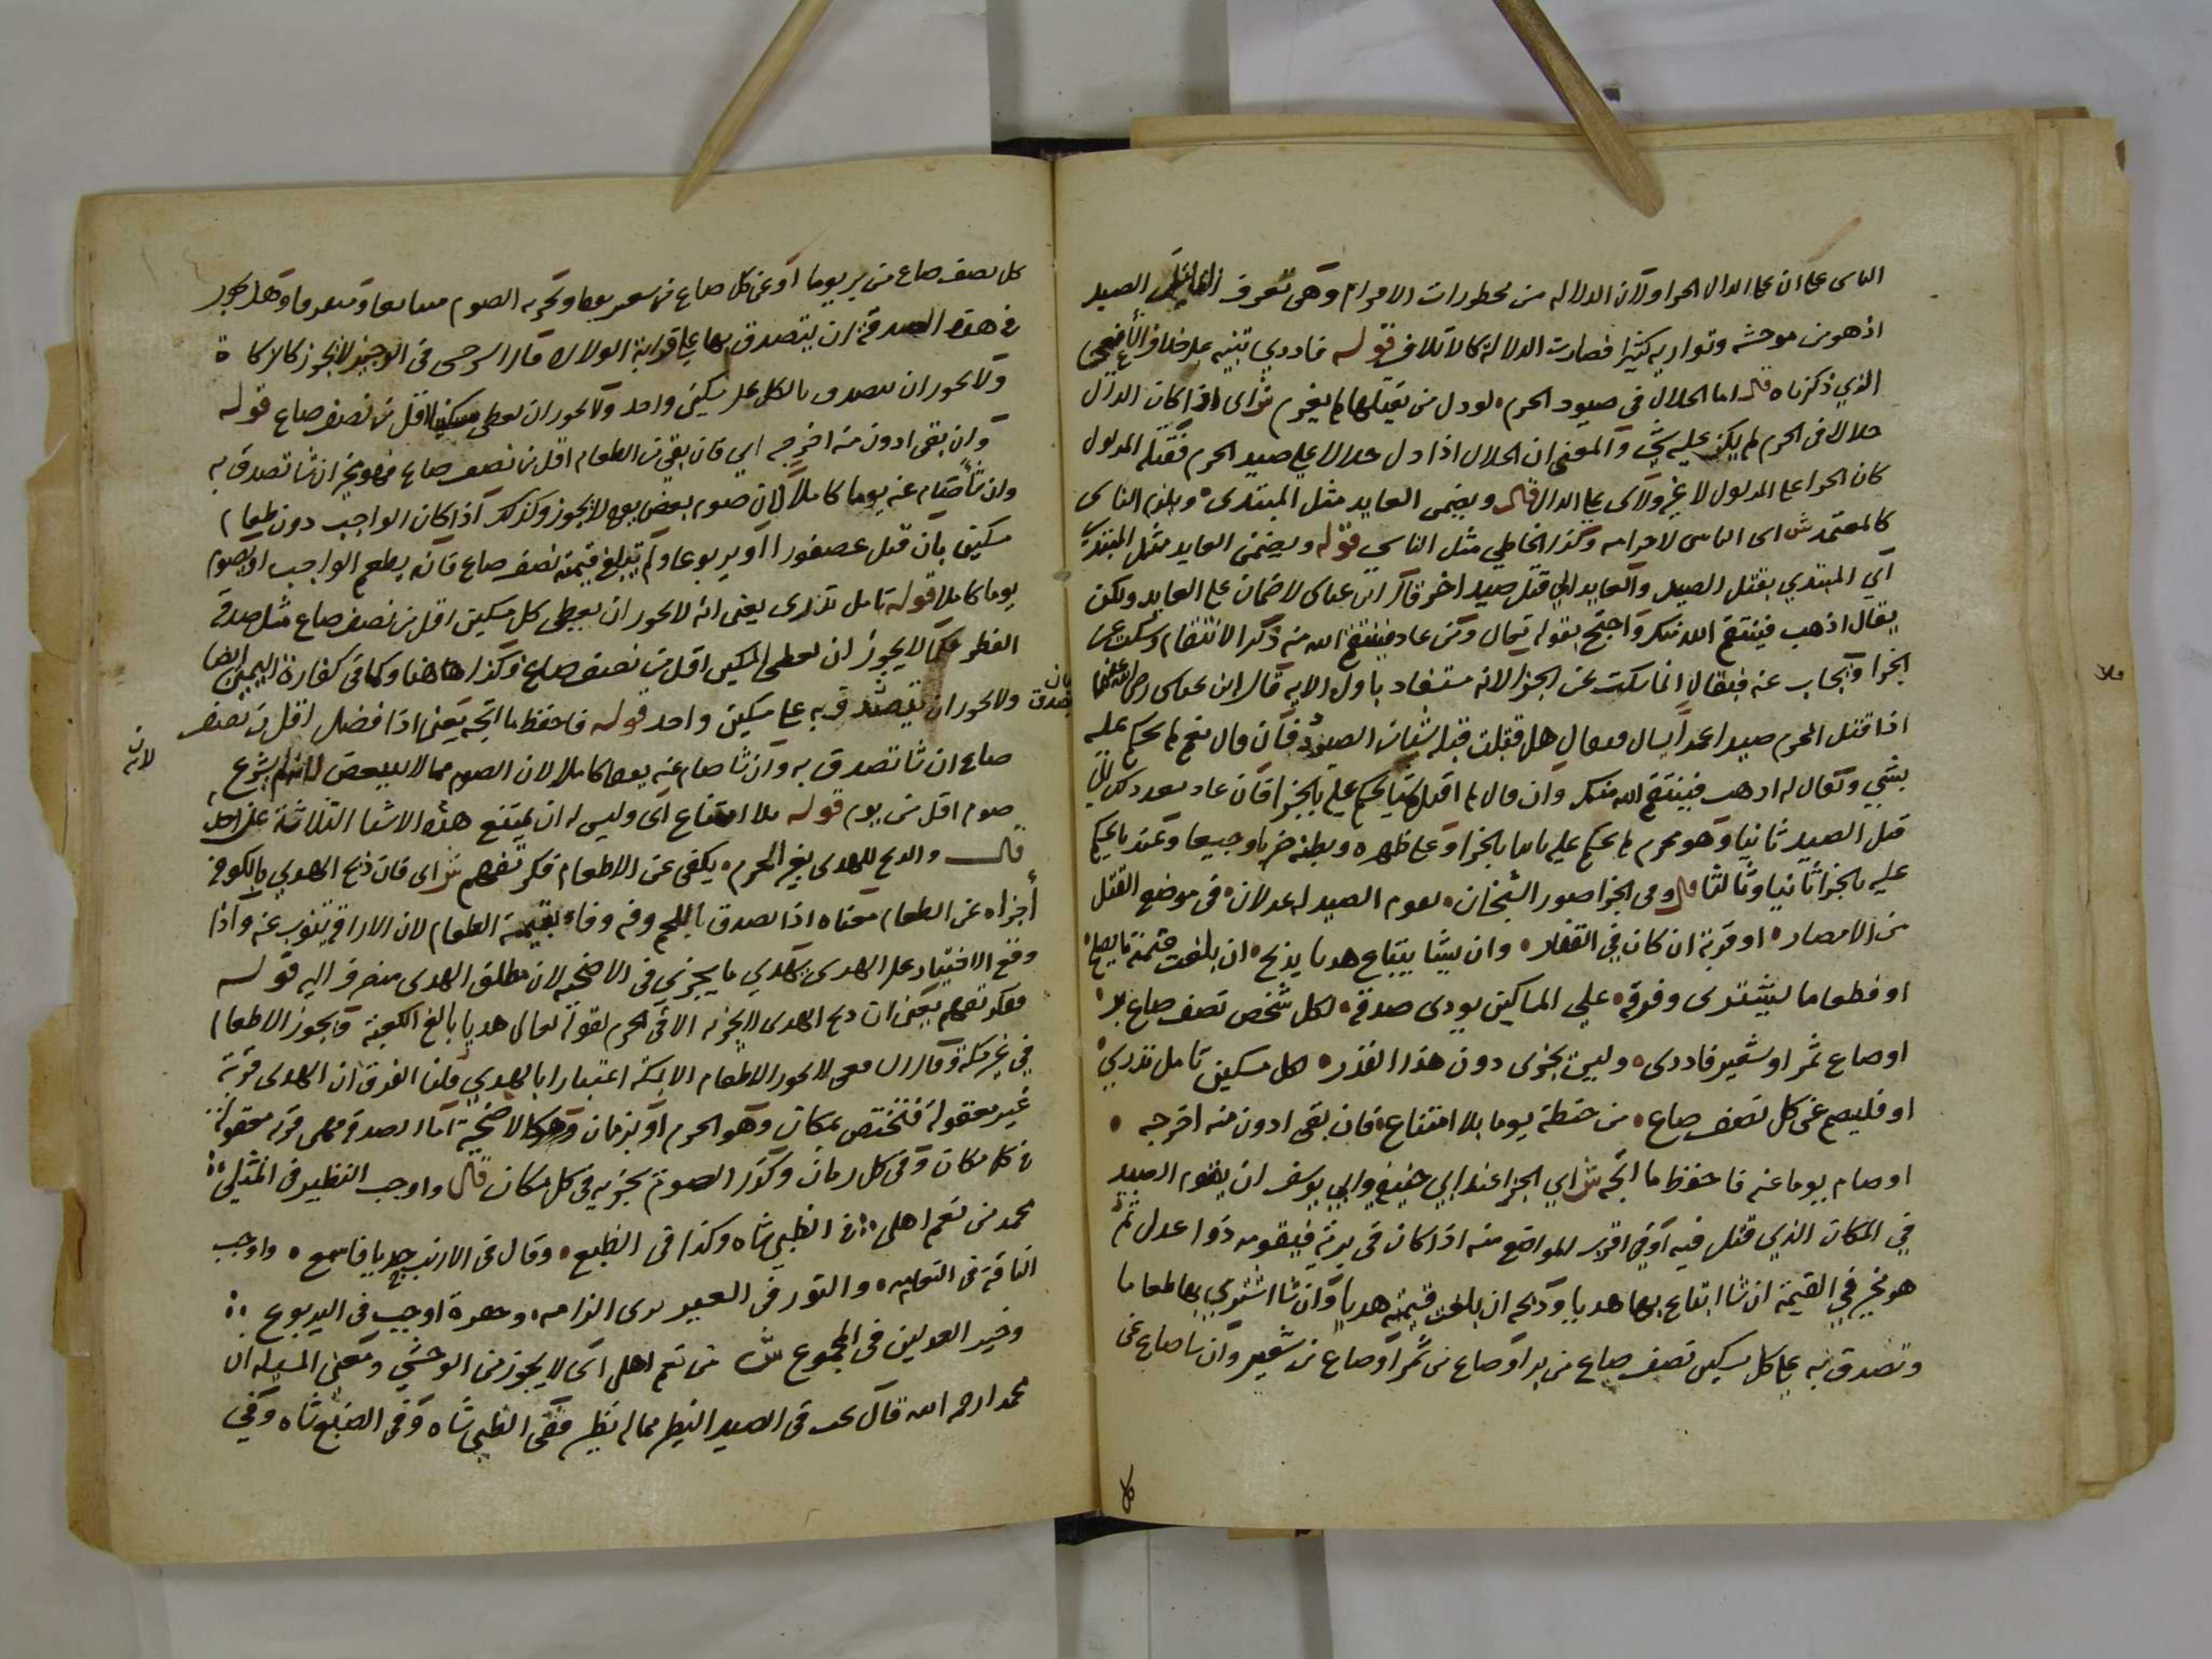 الناس على ان على الدال الجزاء ولان الدلالة من محظورات الاحرام وهي تعرف القاتل الصيد
اذ هو من موحشه وتواريه كثيرا فصارت الدلالة كالاتلاف قوله فاددي تنبيه على خلاف الشافعي
الذي ذكرناه قال اما الحلال في صيود الحرم لو دل من يقتلها لم يغرم ش اى اذا كان الدال
حلالا في الحرم لم يكن عليه شي والمعنى ان الحلال اذا دل حلالا على صيد الحرم فقتله المدلول
كان الجزا على المدلول لا غير ولا شي على الدال قال ويضمن العايد مثل المبتدى ويلزم الناسى
كالمعتمد ش اى الناس لاحرامه وكذا الخاطي مثل الناسي قوله ويضمن العايد مثل المبتدي
اي المبتدي بقتل الصيد والعايد الي قتل صيد اخر قال ابن عباس لا ضمان على العايد ولكن
يقال اذهب فينتقم الله منك واحتج بقوله تعالى ومن عاد فينتقم الله منه ذكر الانتقام وسكت عن
الجزا والجواب عنه فيقال انما سكت عن الجزا لانه مستفاد باول الاية قال ابن عباس رضي الله عنهما
اذا قتل المحرم صيدا عمدا يسال فيقال هل قتلت قبله شيئا من الصيد فان قال نعم لم يحكم عليه
بشي ويقال له اذهب فينتقم الله منك وان قال لم اقتل شيا يحكم عليه بالجزا فان عاد بعد ذلك الي
قتل الصيد ثانيا وهو محرم لم يحكم عليه بالجزا وعلى ظهره وبطنه ضربا وجيعا وعندنا يحكم
عليه بالجزا ثانيا وثالثا قال وفي الجزا صور الشيخان يقوم الصيد له عدلان في موضع القتل
من الامصار او قربة ان كان في القفار وان يشا يبتاع هديا يذبح ان بلغت قيمته ما يصلح
او فطعاما ليشترى وفرقه على المساكين يودى صدقه لكل شخص نصف صاع بر
او صاع تمر او شعير فاددى وليس يجزى دون هذا القدر لكل مسكين تامل تدري
او فليصم عن كل نصف صاع من حنطة يوما بلا امتناع فان بقى ادون منه اخرجه
او صام يوما عنه فاحفظ ما اتجه ش اي الجزا عند ابي حنيفة وابي يوسف ان يقوم الصيد
في المكان الذي قتل فيه او في اقرب المواضع منه اذا كان في برية فيقومه ذوا عدل ثم
هو مخير في القيمة ان شا ابتاع بها هديا وذبحه ان بلغت قيمته هديا وان شا اشترى بها طعاما
وتصدق به على كل مسكين نصف صاع من بر او صاع من تمر او صاع من شعير وان شا صام عن
كل
كل نصف صاع من بر يوما او عن كل صاع من شعير يوما ويجزيه الصوم متتابعا ومتفرقا وهل يجوز
في هذه الصدقة ان يتصدق بها على قرابة الولاد قال السرخسى في الوجيز لا يجوز كالزكاة
ولا يجوز ان يتصدق بالكل على مسكين واحد ولا يجوز ان يعطى مسكينا اقل من نصف صاع قوله
وان بقى ادون منه اخرجه اي فان بقي من الطعام اقل من نصف صاع فهو مخير ان شا تصدق به
وان شا صام عنه يوما كاملا لان صوم بعض يوم لا يجوز وكذلك اذا كان الواجب دون طعام
مسكين بان قتل عصفورا او يربوعا ولم تبلغ قيمته نصف صاع فانه يطعم الواجب او يصوم
يوما كاملا قوله تامل تدرى يعنى انه لا يجوز ان يعطى كل مسكين اقل من نصف صاع مثل صدقة
الفطر فكما لا يجوز ان يعطى المسكين اقل من نصف صاع فكذا هاهنا وكما في كفارة اليمين ايضا
ولا يجوز ان يتصدق به على مسكين واحد قوله فاحفظ ما اتجه يعنى اذا فضل اقل من نصف
صاع ان شا تصدق به وان شا صام عنه يوما كاملا لان الصوم مما لا يتبعض لانه لم يشرع
لانه
صوم اقل من يوم قوله بلا امتناع اى وليس له ان يمتنع هذه الاشيا الثلاثة عن احد
قال والذبح للهدى بغير الحرم يكفى عن الاطعام فكر تفهم ش اى فان ذبح الهدي بالكوفة
اجزاه عن الطعام معناه اذا تصدق باللحم وفيه وفاء بقيمة الطعام لان الاراقة تنوب عنه واذا
وقع الاختيار على الهدى يهدي ما يجزي في الاضحية لان مطلق الهدى منصرف اليه قوله
ففكر تفهم يعنى ان ذبح الهدى لا يجزيه الا في الحرم لقوله تعالى هديا بالغ الكعبة ويجوز الاطعام
في غير مكة وقال الشافعى لا يجوز الاطعام الا بمكة اعتبارا بالهدي قلنا الفرق ان الهدى قربة
غير معقولة فتختص بمكان وهو الحرم او بزمان وهو كالاضحية اما الصدقة فهى قربة معقولة
في كل مكان وفي كل زمان وكذا الصوم يجزيه في كل مكان قال واوجب النظير في المثلي
محمد من نعم اهلى في الظبي شاه وكذا في الضبع وقال في الارنب جديا فاسمع واوجب
الناقة في النعامه والثور في العير يرى الزامه وجفرة اوجب في اليربوع
وخير العدلين في المجموع ش من نعم اهلى اى لا يجوز من الوحشي ومعنى المسيلة ان
محمدا رحمه الله قال يجب في الصيد النظير مما له نظير ففي الظبي شاه وفي الضبع شاه وفي